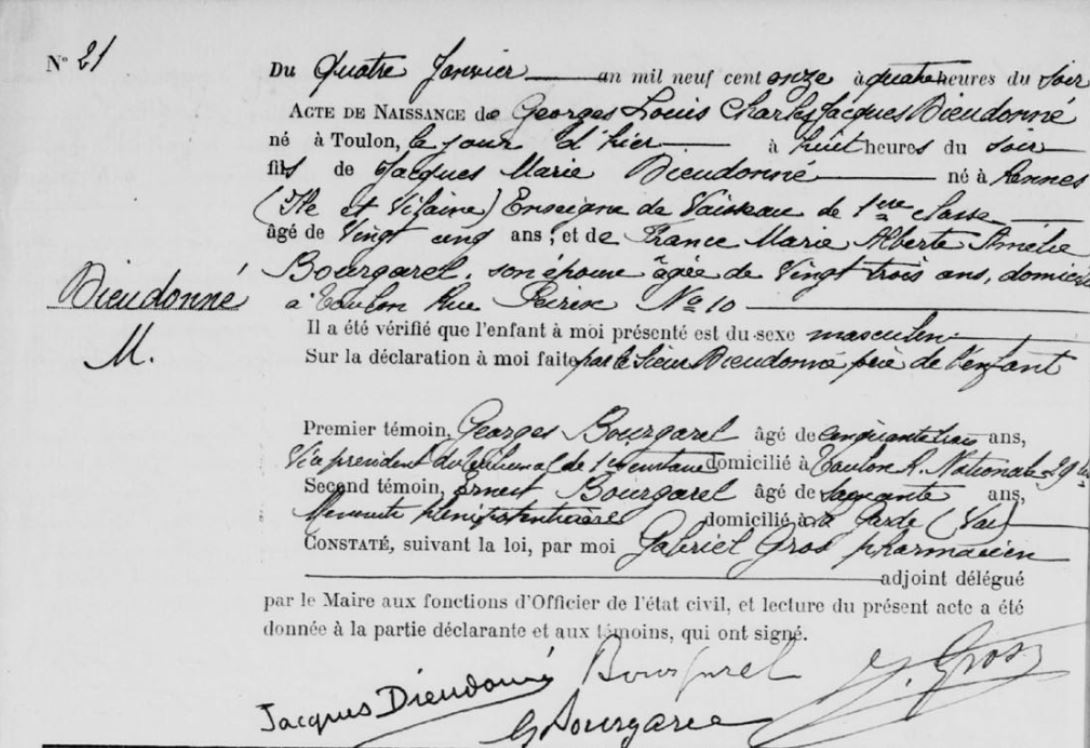 N° 21
Du Quatre Janvier an mil neuf cent onze à quatre heures du soir
ACTE DE NAISSANCE de Georges Louis Charles Jacques Dieudonné
né à Toulon, le jour d'hier à huit heures du soir
fils de Jacques Marie Dieudonné né à Rennes
(Ille et Vilaine) Enseigne de Vaisseau de 1ère classe
âgé de Vingt cinq ans, et de France Marie Alberte Amélie
Bourgarel, son épouse âgée de Vingt trois ans, domiciliés
à Toulon Rue Peiresc No 10
Dieudonné
M.
Il a été vérifié que l'enfant à moi présenté est du sexe masculin
Sur la déclaration à moi faite par le sieur Dieudonné père de l'enfant
Premier témoin, Georges Bourgarel âgé de cinquante trois ans,
Vice president du tribunal de 1re instance domicilié à Toulon R. Nationale
Second témoin, Ernest Bourgarel âgé de soixante ans,
Ministre plénipotentiaire domicilié à la Garde (Var)
CONSTATÉ, suivant la loi, par moi Gabriel Gros pharmacien
adjoint délégué
par le Maire aux fonctions d'Officier de l'état civil, et lecture du présent acte a été
donnée à la partie déclarante et aux témoins, qui ont signé.
Jacques Dieudonné Bourgarel G. Gros
G Bourgarel